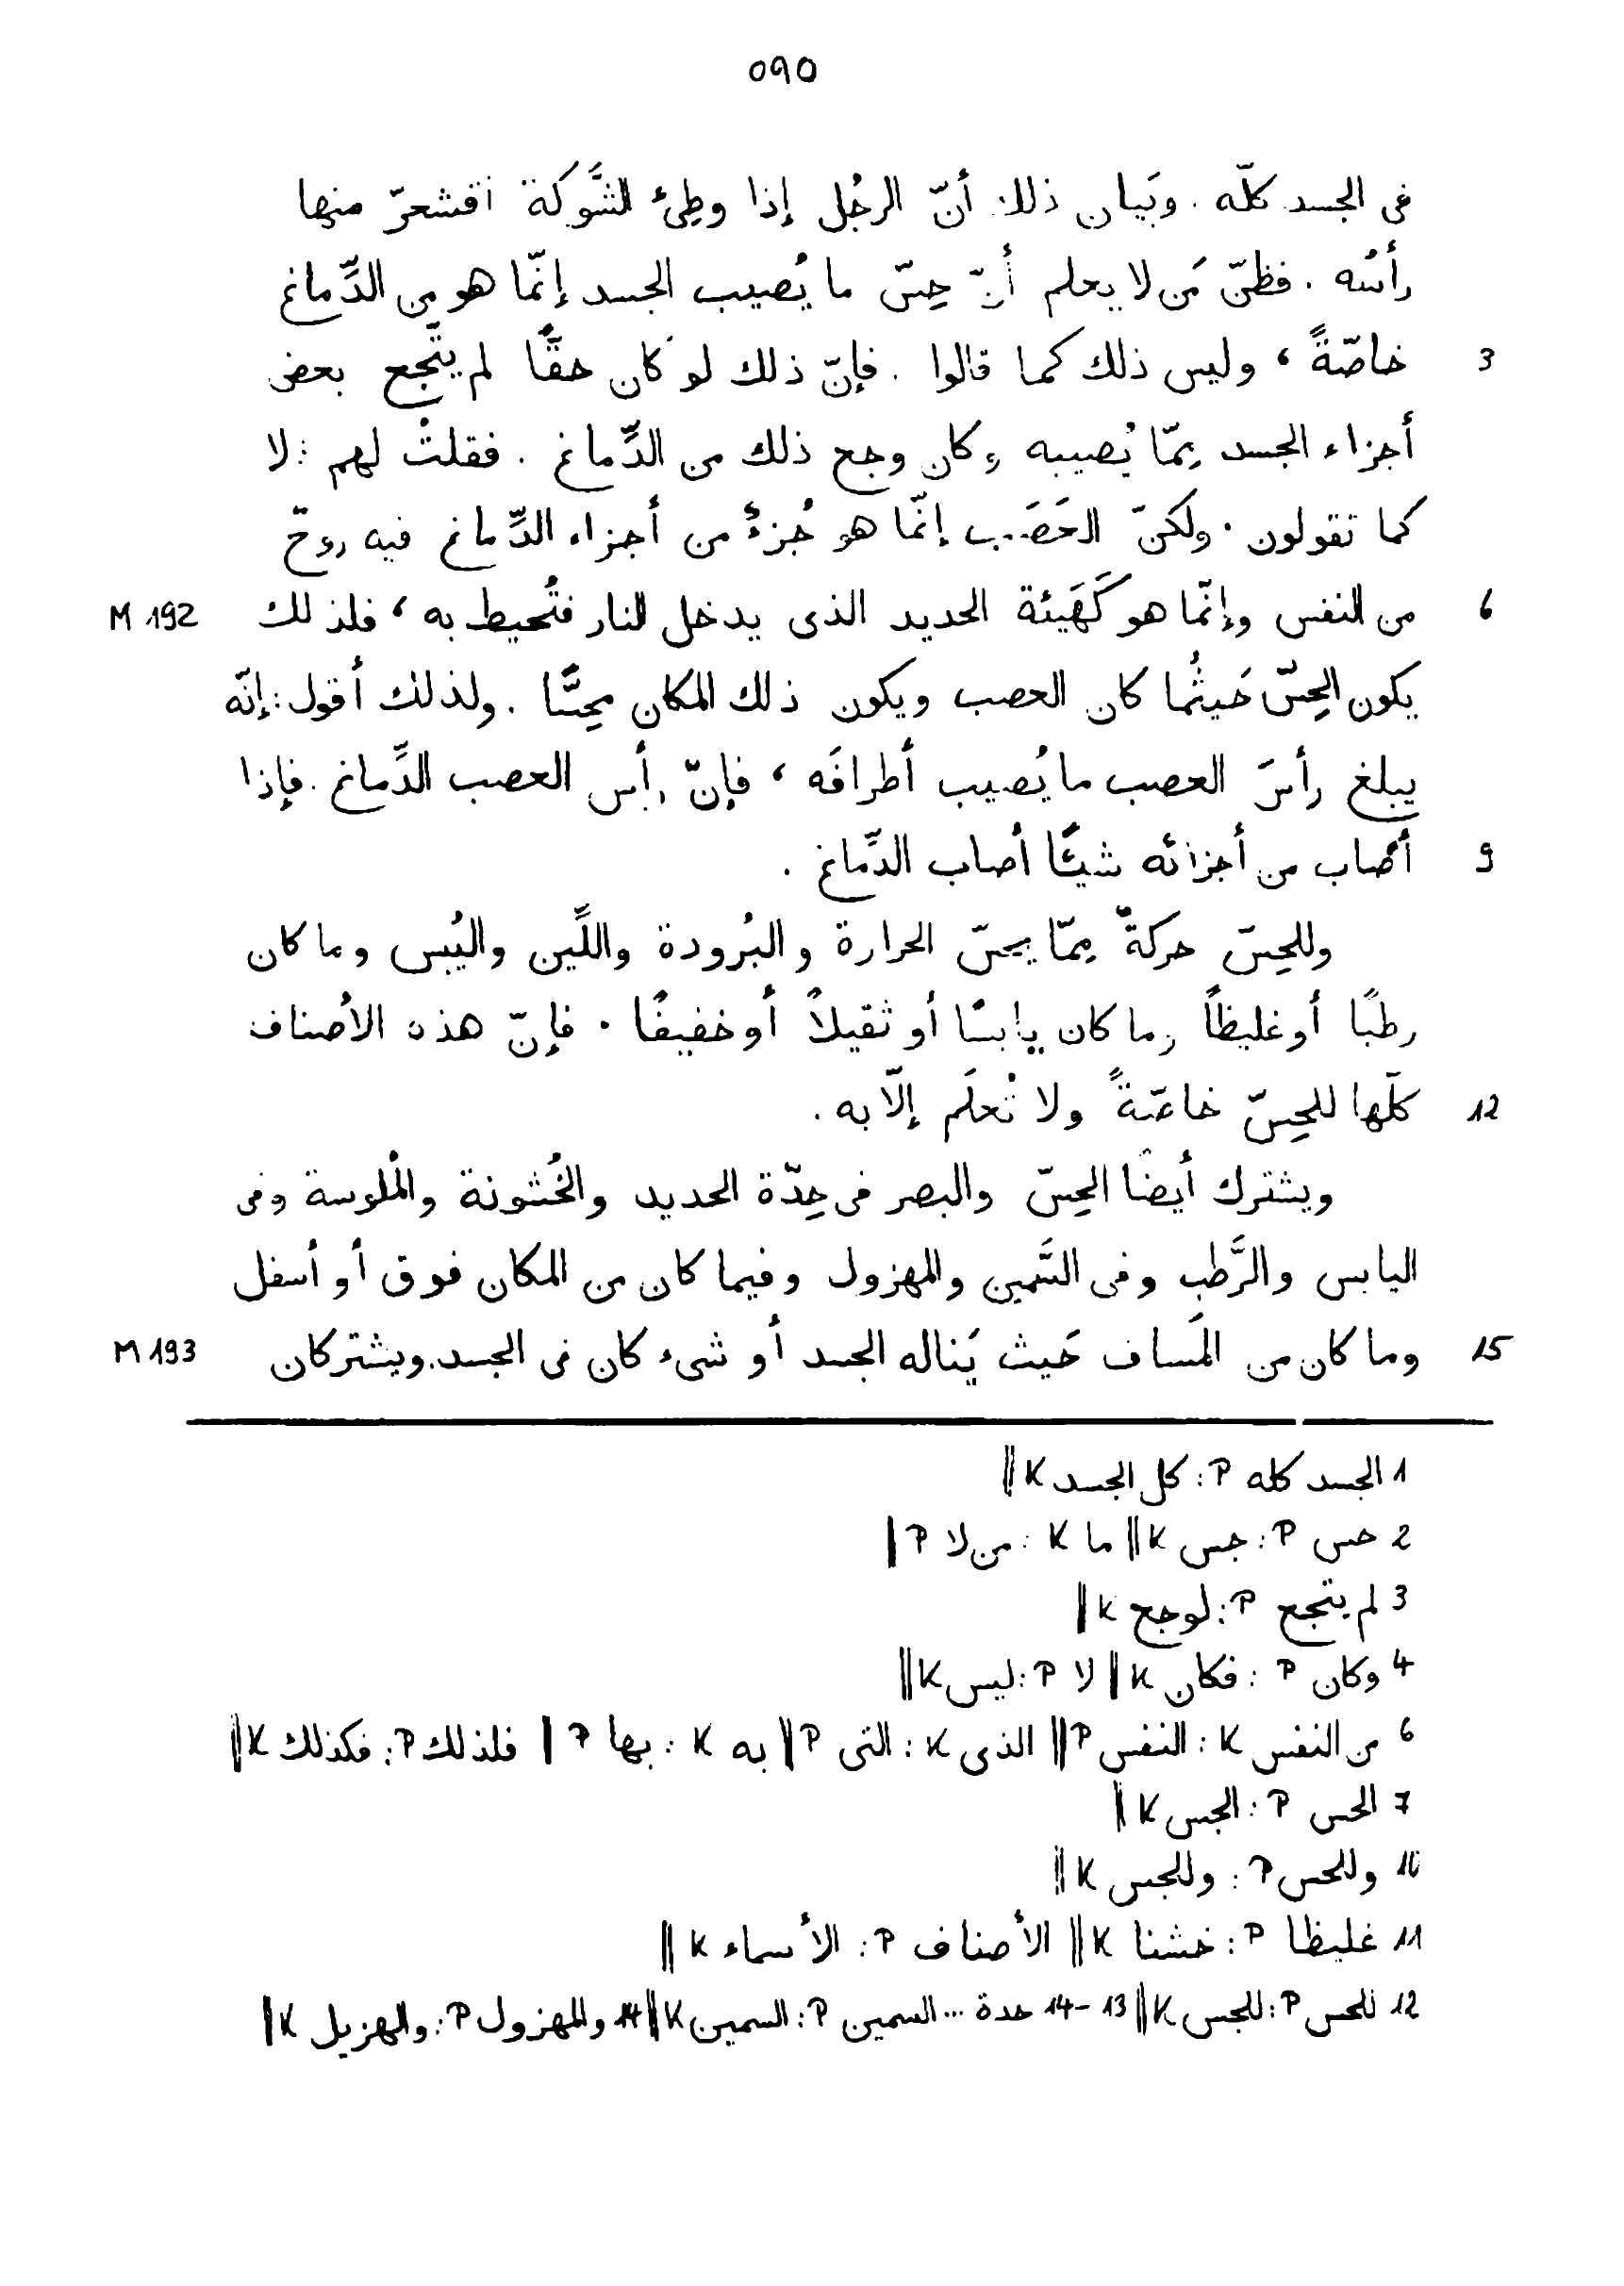 ٥٩٥
فى الجسد كلّه . وبَيان ذلك أنّ الرجُل إذا وطِئ الشَّوكة اقشعرّ منها
رأسُه . فظنّ مَن لا يعلم أنّ حِسّ ما يُصيب الجسد إنّما هو من الدِّماغ
3 خاصّةً ، وليس ذلك كما قالوا . فإنّ ذلك لو كان حقًّا لم يتّجع بعض
أجزاء الجسد بِمّا يُصيبه وكان وجع ذلك من الدِّماغ . فقلتُ لهم : لا
كما تقولون . ولكنّ العَصَب إنّما هو جُزءٌ من أجزاء الدِّماغ فيه روح
6 من النفس وإنّما هو كَهَيئة الحديد الذى يدخل النار فتُحيط به ، فلذلك M 192
يكون الحِسّ حَيثُما كان العصب ويكون ذلك المكان مجسًّا . ولذلك أقول : إنّه
يبلغ رأسَ العصب ما يُصيب أطرافَه ، فإنّ رأس العصب الدِّماغ . فإذا
9 أصاب من أجزائه شيئًا أصاب الدِّماغ .
وللحِسّ حركةٌ مِمّا يحسّ الحرارة والبُرودة واللِّين واليُبس وما كان
رطبًا أو غليظاً وما كان يابسًا أو ثقيلاً أو خفيفًا . فإنّ هذه الأصناف
12 كلّها للحِسّ خاصّةً ولا تُعلَم إلّا به .
ويشترك أيضًا الحِسّ والبصر فى حِدّة الحديد والخُشونة والمُلوسة وفى
اليابس والرَّطب وفى السَّمين والمهزول وفيما كان من المكان فوق أو أسفل
15 وما كان من المَساف حَيث يَناله الجسد أو شىء كان فى الجسد . ويشتركان M 193
1 الجسد كله P : كل الجسد K ||
2 حس P : جس K || ما K : من لا P |
3 لم يتجع P : لوجع K ||
4 وكان P : فكان K || لا P : ليس K ||
6 من النفس K : النفس P || الذى K : التى P || به K : بها P || فلذلك P : فكذلك K ||
7 الحس P : الجس K ||
10 وللحس P : وللجس K ||
11 غليظا P : خشنا K || الأصناف P : الأسماء K ||
12 للحس P : للجس K || 13-14 حدة ... السمين P : السمين K || 14 والمهزول P : والهزيل K ||